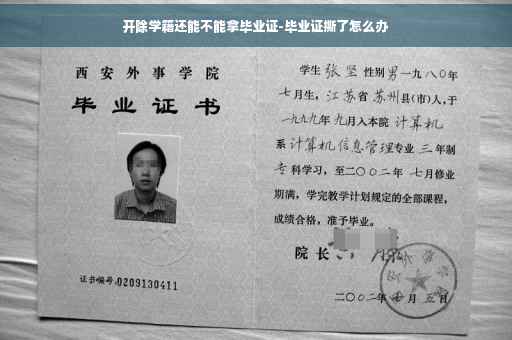 开除学籍还能不能拿毕业证-毕业证撕了怎么办
西安外事学院
毕业证书
证书编号:0209130411
学生 张坚 性别 男 一九八〇年
七月生，江苏省 苏州县(市)人,于
一九九九年 九月入本院 计算机
系 计算机信息管理专业 三 年制
专 科学习，至二〇〇二年 七月修业
期满，学完教学计划规定的全部课程，
成绩合格，准予毕业。
院 长
二〇〇二年 月 五日